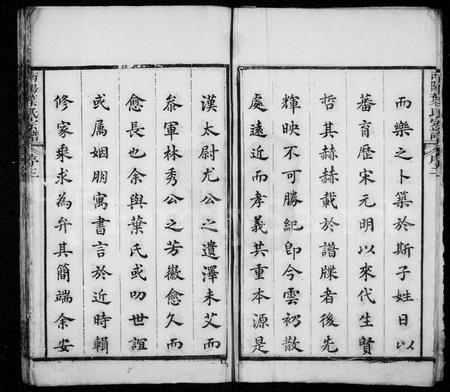 而樂之卜築於斯子姓日以
蕃育歷宋元明以來代生賢
哲其赫赫載於譜牒者後先
輝映不可勝紀卽今雲礽散
處遠近而孝義其重本源是
漢太尉尤公之遺澤未艾而
叅軍林秀公之芳徽愈久而
愈長也余與葉氏或叨世誼
或属姻朋寓書言於近時輯
修家乘求為弁其簡端余安
南陽葉氏宗譜